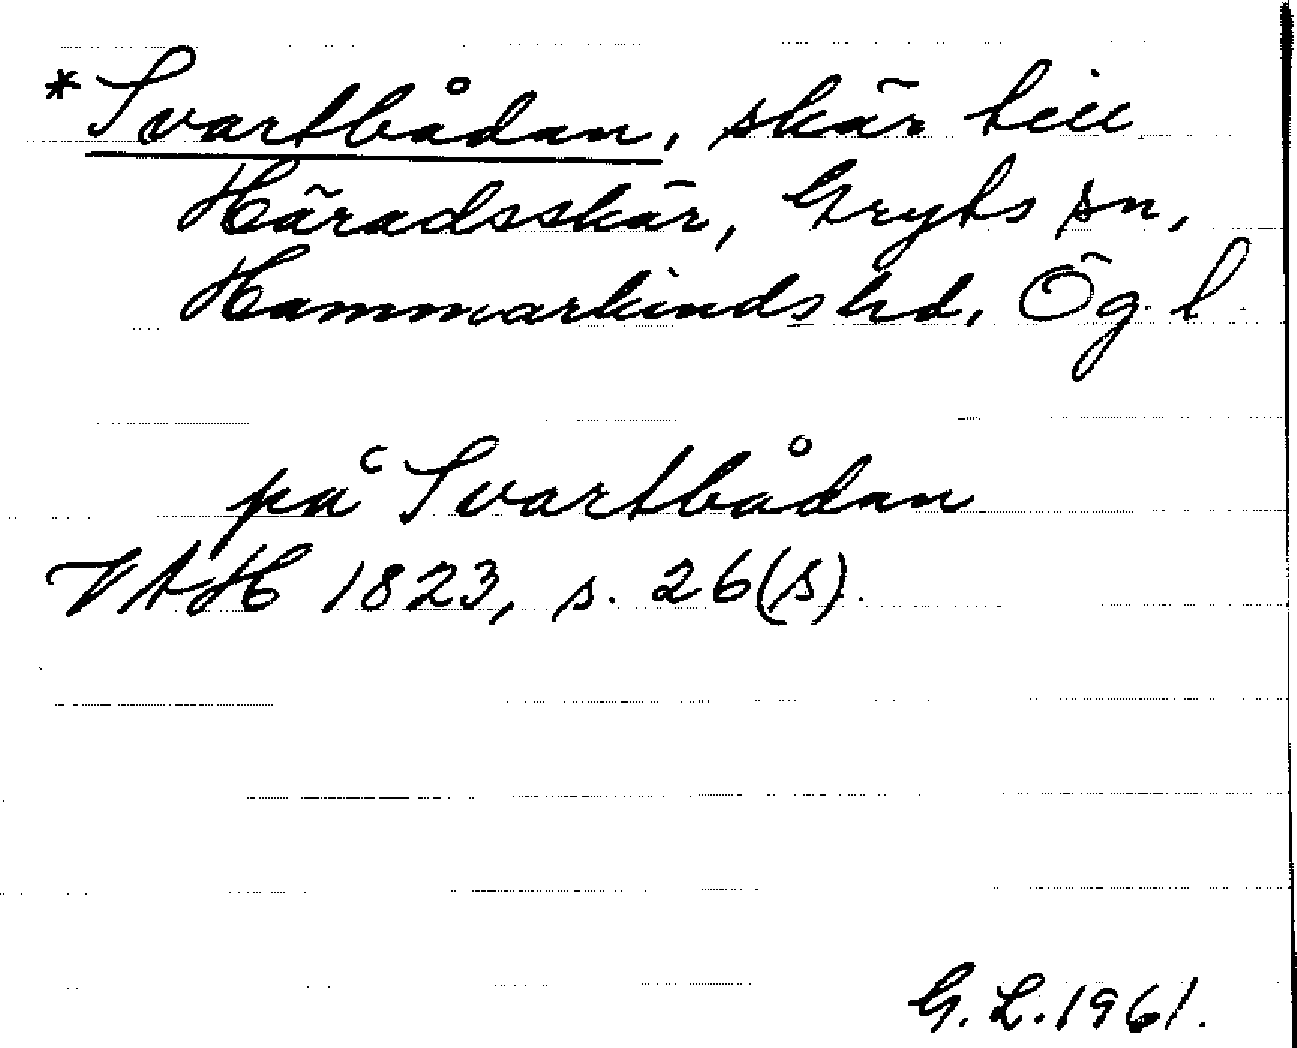 *Svartbådan, skär till
Häradsskär, Gryts sn,
Hammarkinds hd, Ög. l.
på Svartbådan
VAH 1823, s. 26(s).
G. L. 1961.